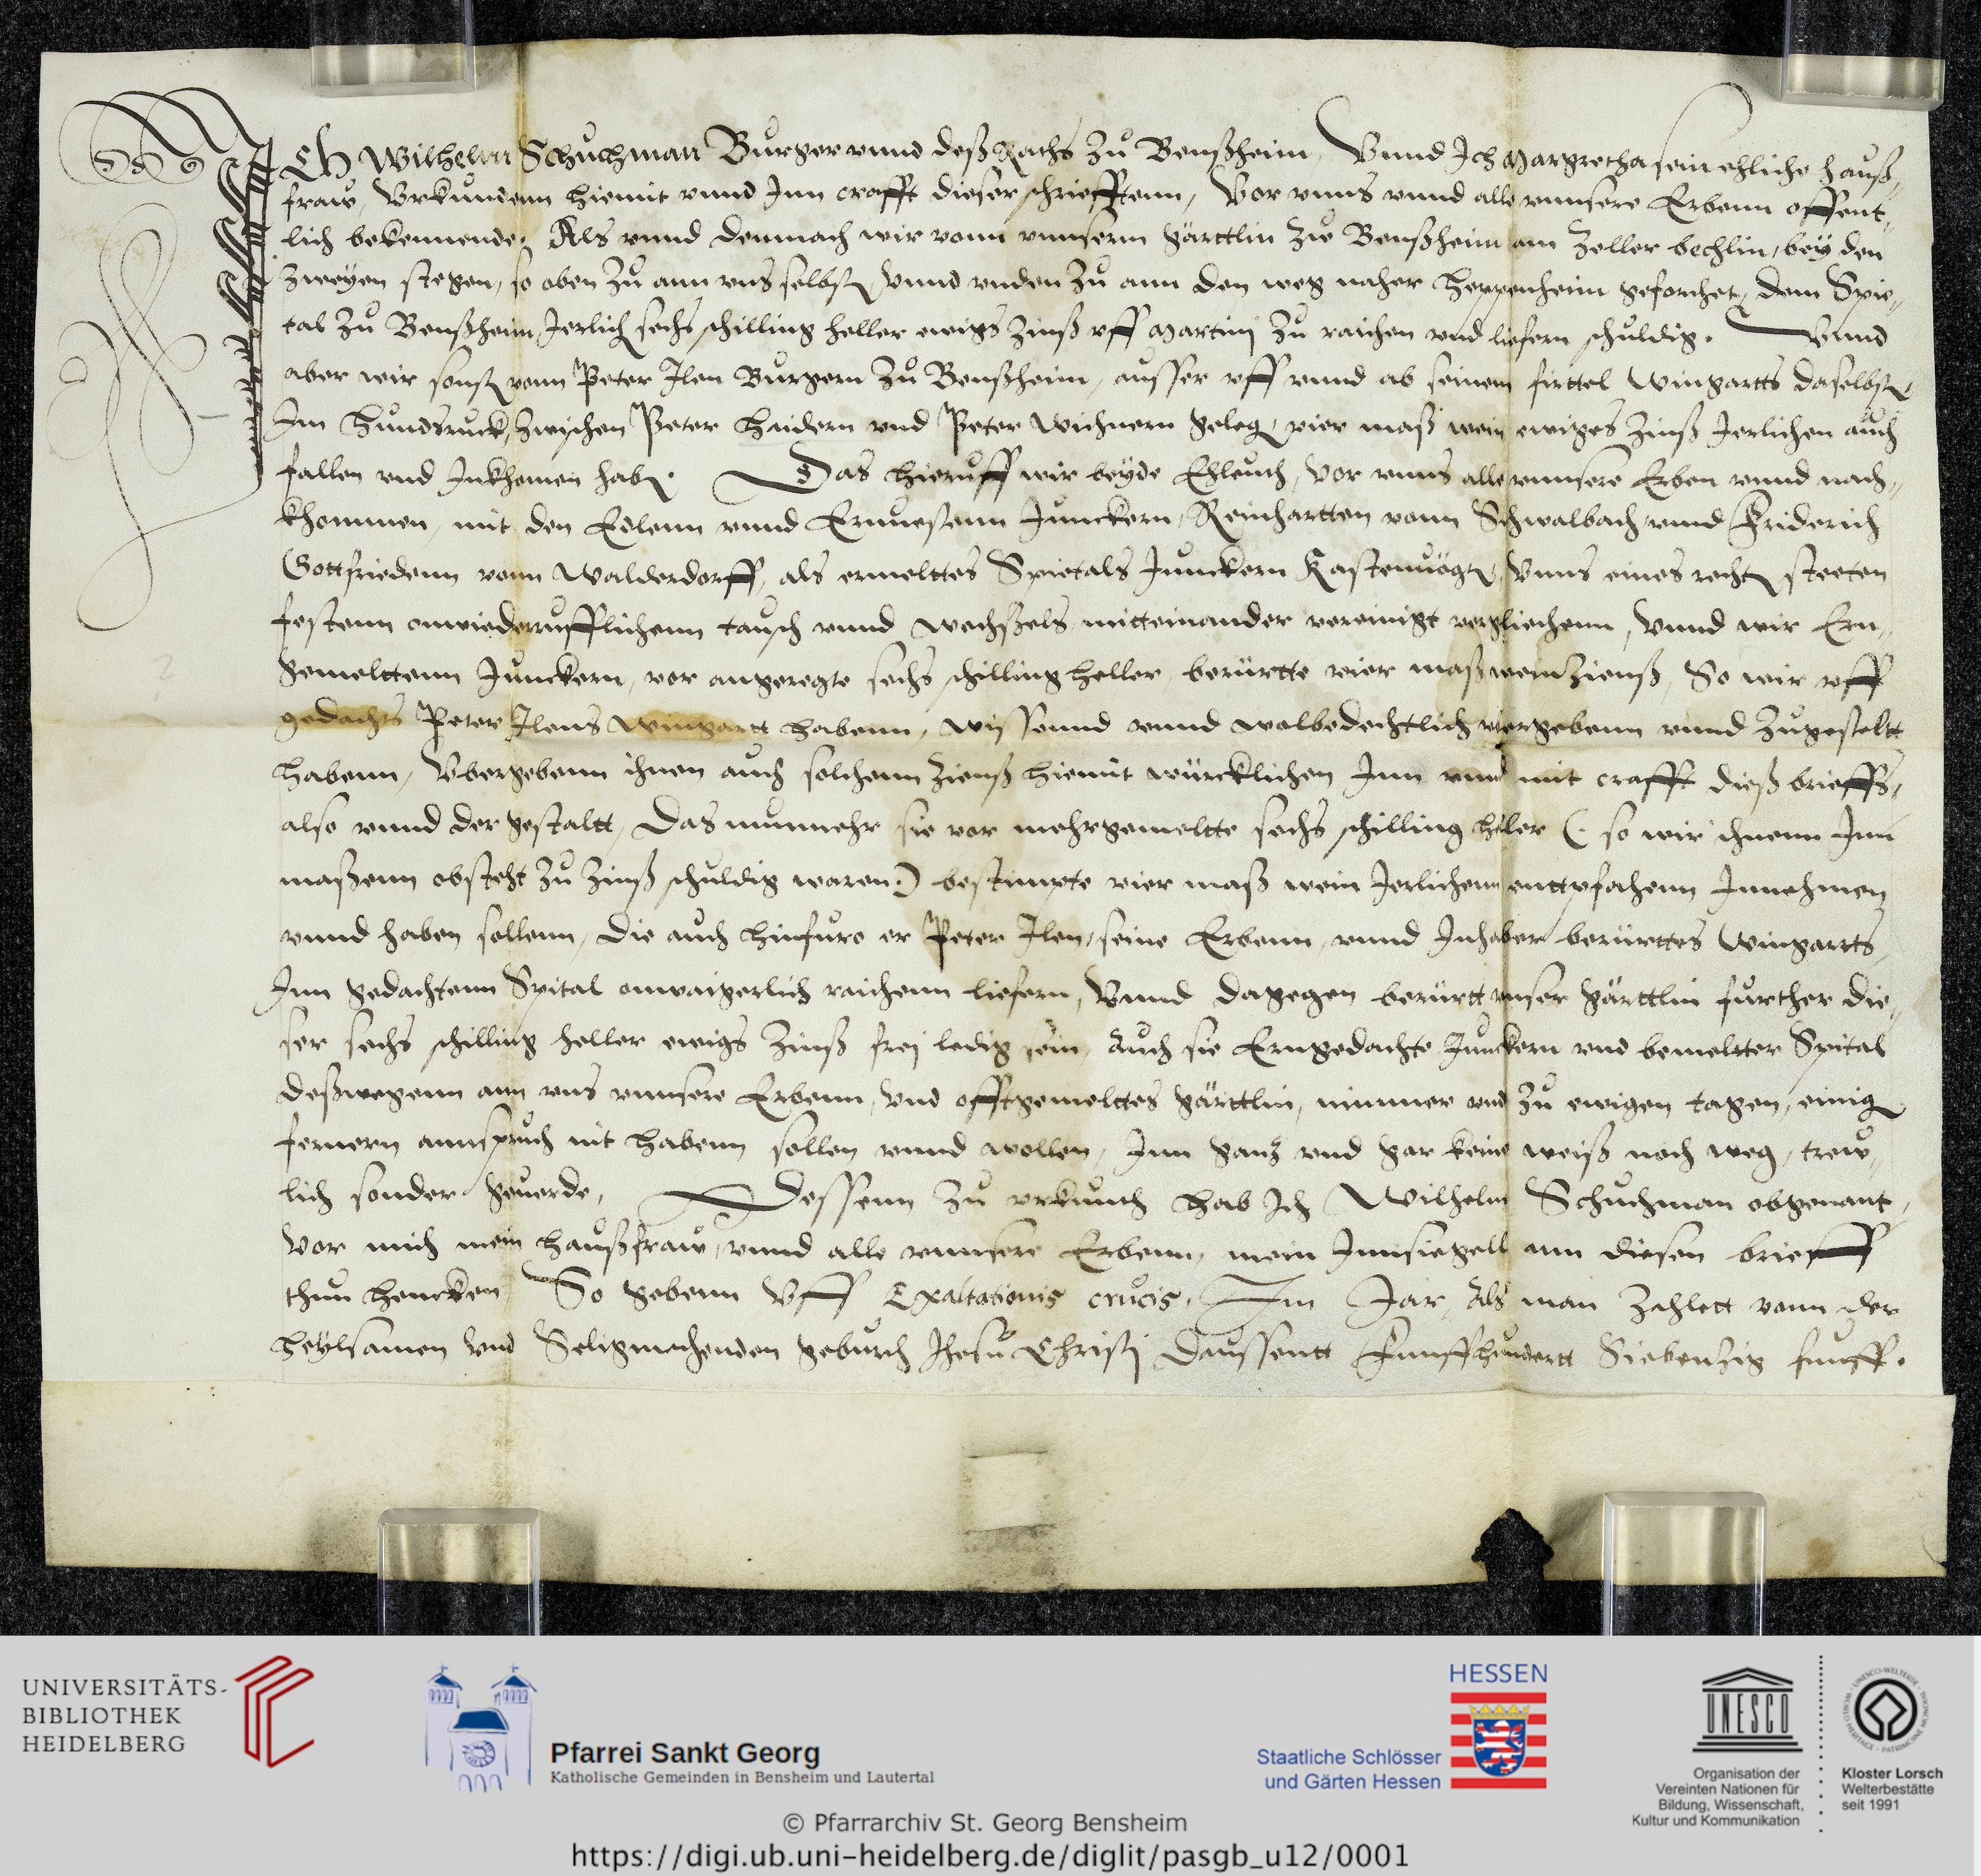 ICh Wilhelm Schuchman Burger vnnd deß Raths zu Benßheim, Vnnd Ich Margretha sein ehliche hauß,,
fraw, Vrkundenn hiemit vnnd Inn crafft dieser schriefftenn, Vor vnns vnnd alle vnnsere Erbenn offent,,
lich bekennende, Als vnnd demnach wir vonn vnnserm gärttlin zue Benßheim am Zeller bechlin, bey den
zweyen stegen, so oben zu ann vns selbst, vnnd vnden zu ann den weg naher Heppenheim geforchet, dem Spie,,
tal zu Benßheim Jerlich sechs schilling heller ewigs zinß vff Martinj zu raichen vnd liefern schuldig. Vnnd
aber wir sonst vonn Peter Ilen Burgern zu Benßheim, ausser vff vnnd ab seinem firttel Wingartts daselbst,
Im Hundsruck, zwischen Peter Haidern vnd Peter Wichnern geleg, vier maß wein ewiges zinß Jerlichen auch
fallen vnd Inkhomen hab. Das hieruff wir beyde Eheleuth, vor vnns alle vnnsere Erben vnnd nach,,
khommen, mit den Edlenn vnnd Ernuestenn Junckern, Reinhartten vonn Schwalbach, vnnd Friderich
Gottfriedenn vonn Walderdorff, als ermelttes Spietals Junckern Kastenuögt, Vnns eines recht steeten
festenn onwiederrufflichenn tausch vnnd wechßels mitteinander vereinigt vergliechenn, Vnnd wir Ern,,
gemelttenn Junckern, vor angeregte sechs schilling heller berürtte vier maß wein zienß, So wir vff
gedachts Peter Ilens Wingartt habenn, wissennd vnnd wolbedechtlich vbergebenn vnnd zugestaltt
habenn, Vbergebenn ihnen auch solchenn zienß hiemit würcklichen Inn vnnd mit crafft dieß brieffs,
also vnnd der gestaltt, Das nunmehr sie vor mehrgemeltte sechs schilling heller (: so wir ihnenn Inn
maßenn obsteht zu zinß schuldig waren:) bestimpte vier maß wein Jerlichenn enttpfahenn Innehmen
vnnd haben sollenn, Die auch hinfuro er Peter Ilen, seine Erbenn, vnnd Inhaber berürttes Wingartts,
Inn gedachtenn Spital onwaigerlich raichenn liefern, Vnnd dagegen berürtt vnser gärttlin further die,,
ser sechs schilling heller ewigs zinß frej ledig sein, Auch sie Erngedachte Junckern vnd bemeltter Spital
deßwegenn ann vns vnnsere Erbenn, vnd offtgemelttes gärttlin, nimmer vnd zu ewigen tagen, einig
fernern annspruch nit habenn sollen vnnd wollen, Inn ganz vnd gar keine weiß noch weg, trew,,
lich sonder geuerde, Dessenn zu vrkunth hab Ich Wilhelm Schuchman obgenant,
vor mich mein haußfraw, vnnd alle vnnsere Erbenn, mein Innsiegell ann diesen brieff
thun hencken, So gebenn Vff Exaltationis crucis, Im Jar, Als man Zahlett vonn der
heylsamen vnd Seligmachenden geburth Jhesu Christj Daussentt Funffhundertt Siebenzig funff.
UNIVERSITÄTS-
BIBLIOTHEK
HEIDELBERG
Pfarrei Sankt Georg
Katholische Gemeinden in Bensheim und Lautertal
HESSEN
Staatliche Schlösser
und Gärten Hessen
UNESCO
Organisation der
Vereinten Nationen für
Bildung, Wissenschaft,
Kultur und Kommunikation
Kloster Lorsch
Welterbestätte
seit 1991
© Pfarrarchiv St. Georg Bensheim
https://digi.ub.uni-heidelberg.de/diglit/pasgb_u12/0001